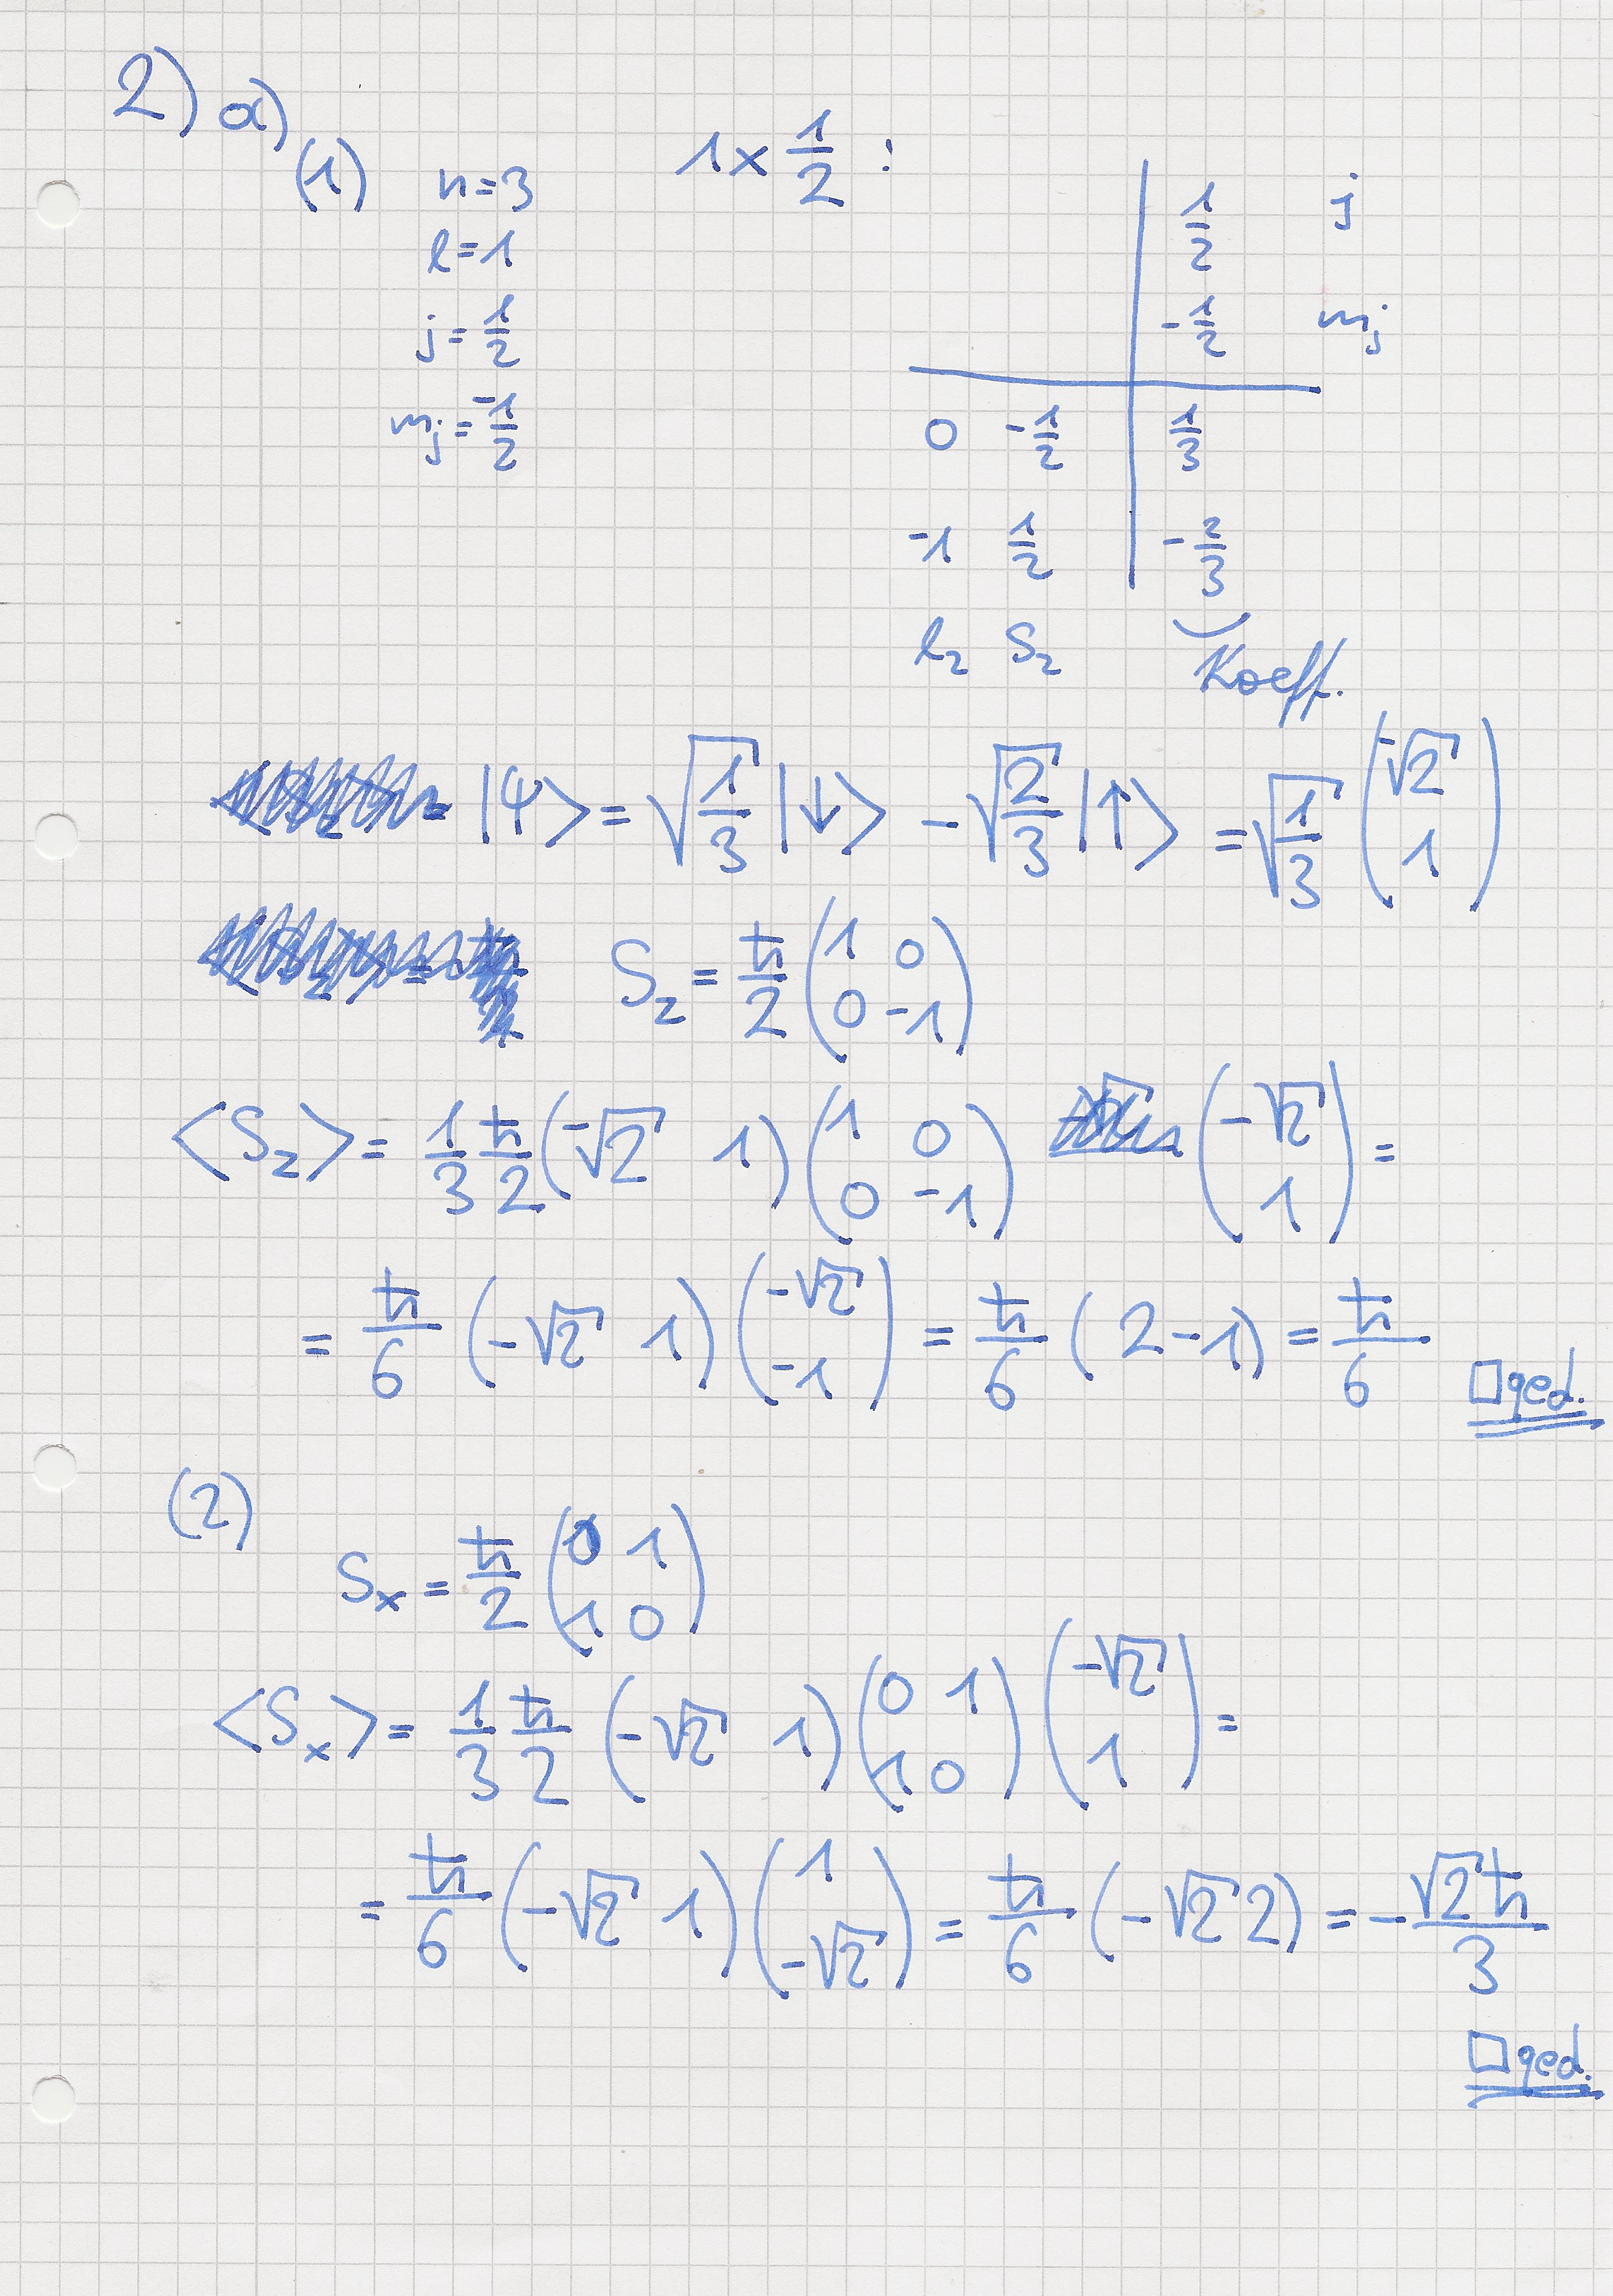 2) a)
(1) n=3 1 × 1/2 :
l=1
j= 1/2
mj= -1/2
1/2 j
-1/2 mj
0 -1/2 1/3
-1 1/2 -2/3
lz Sz Koeff.
|ψ⟩ = √(1/3) |↓⟩ - √(2/3) |↑⟩ = √(1/3) (-√2 ; 1)
Sz = ħ/2 (1 0 ; 0 -1)
⟨Sz⟩ = 1/3 ħ/2 (-√2 1) (1 0 ; 0 -1) (-√2 ; 1) =
= ħ/6 (-√2 1) (-√2 ; -1) = ħ/6 (2-1) = ħ/6 □qed.
(2)
Sx = ħ/2 (0 1 ; 1 0)
⟨Sx⟩ = 1/3 ħ/2 (-√2 1) (0 1 ; 1 0) (-√2 ; 1) =
= ħ/6 (-√2 1) (1 ; -√2) = ħ/6 (-√2 2) = -√2ħ/3
□qed.